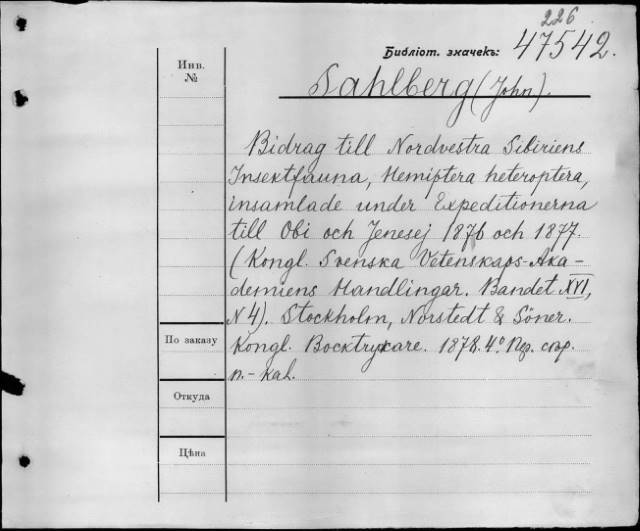 226
Библіот. значекъ: 47542.
Инв.
№
Sahlberg (John).
Bidrag till Nordvestra Sibiriens
Insektfauna, Hemiptera heteroptera,
insamlade under Expeditionerna
till Obi och Jenesej 1876 och 1877.
(Kongl. Svenska Vetenskaps-Aka-
demiens Handlingar. Bandet XVI,
N 4). Stockholm, Norstedt & Söner.
По заказу
Kongl. Bocktryckare. 1878. 4° Пер. стр.
п.-
Откуда
Цѣна